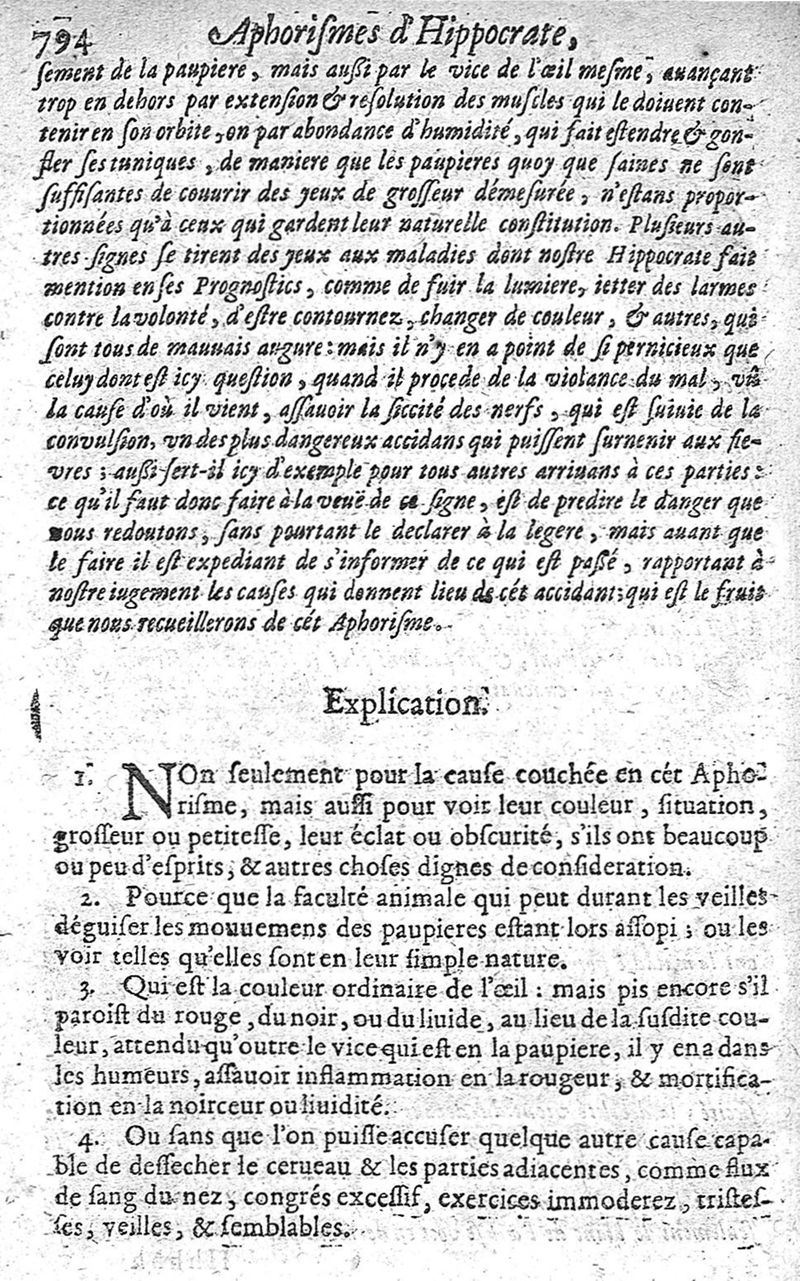 794 Aphorismes d'Hippocrate,
sement de la paupiere, mais aussi par le vice de l'œil mesme, auançant
trop en dehors par extension & resolution des muscles qui le doiuent con-
tenir en son orbite, on par abondance d'humidité, qui fait estendre & gon-
fler ses tuniques, de maniere que les paupieres quoy que saines ne sont
suffisantes de couurir des yeux de grosseur démesurée, n'estans propor-
tionnées qu'à ceux qui gardent leur naturelle constitution. Plusieurs au-
tres signes se tirent des yeux aux maladies dont nostre Hippocrate fait
mention en ses Prognostics, comme de fuir la lumiere, ietter des larmes
contre la volonté, d'estre contournez, changer de couleur, & autres, qui
sont tous de mauuais augure: mais il n'y en a point de si pernicieux que
celuy dont est icy question, quand il procede de la violance du mal, vû
la cause d'où il vient, assauoir la siccité des nerfs, qui est suiuie de la
conuulsion, vn des plus dangereux accidans qui puissent suruenir aux fie-
vres; aussi sert-il icy d'exemple pour tous autres arriuans à ces parties:
ce qu'il faut donc faire à la veuë de ce signe, est de predire le danger que
nous redoutons, sans pourtant le declarer à la legere, mais auant que
le faire il est expediant de s'informer de ce qui est passé, rapportant à
nostre iugement les causes qui donnent lieu de cét accidant; qui est le fruit
que nous recueillerons de cét Aphorisme.
Explication.
1. NOn seulement pour la cause couchée en cét Apho-
risme, mais aussi pour voir leur couleur, situation,
grosseur ou petitesse, leur éclat ou obscurité, s'ils ont beaucoup
ou peu d'esprits, & autres choses dignes de consideration.
2. Pource que la faculté animale qui peut durant les veilles
déguiser les mouuemens des paupieres estant lors assopi; ou les
voir telles qu'elles sont en leur simple nature.
3. Qui est la couleur ordinaire de l'œil: mais pis encore s'il
paroist du rouge, du noir, ou du liuide, au lieu de la susdite cou-
leur, attendu qu'outre le vice qui est en la paupiere, il y en a dans
les humeurs, assauoir inflammation en la rougeur, & mortifica-
tion en la noirceur ou liuidité.
4. Ou sans que l'on puisse accuser quelque autre cause capa-
ble de dessecher le cerueau & les parties adiacentes, comme flux
de sang du nez, congrés excessif, exercices immoderez, tristes-
ses, veilles, & semblables.